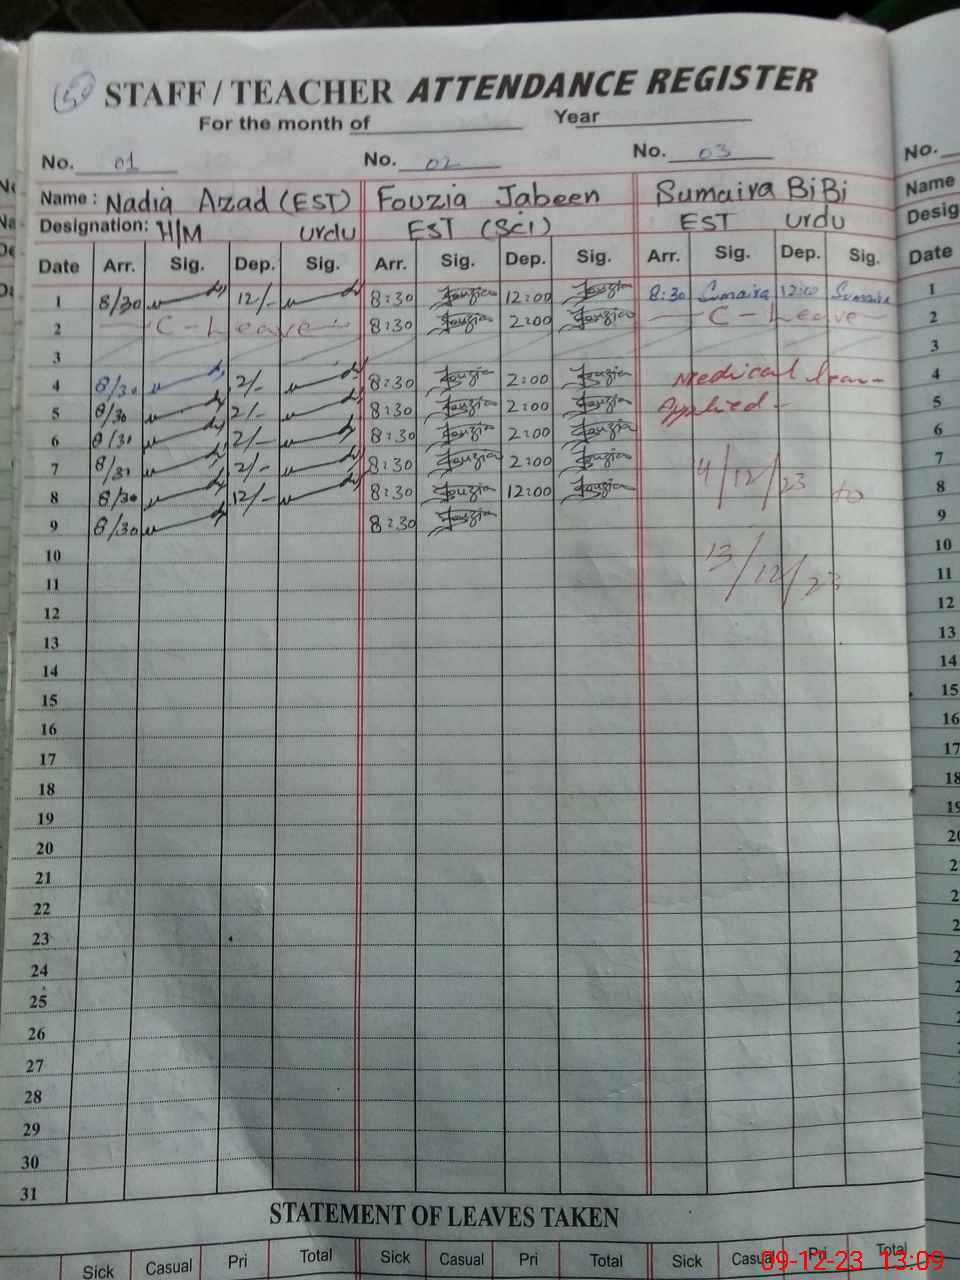 150 STAFF / TEACHER ATTENDANCE REGISTER
For the month of Year
No. 01 No. 02 No. 03 No.
Name : Nadia Azad (EST) Fouzia Jabeen Sumaira BiBi Name
Designation: H/M urdu EST (Sci) EST urdu Desig
Date Arr. Sig. Dep. Sig. Arr. Sig. Dep. Sig. Arr. Sig. Dep. Sig. Date
1 8/30 12/- 8:30 Fouzia 12:00 Fouzia 8:30 Sumaira 12:00 Sumaira 1
2 C - Leave 8:30 Fouzia 2:00 Fouzia C - Leave 2
3 3
4 8/30 2/- 8:30 Fouzia 2:00 Fouzia Medical 4
5 8/30 2/- 8:30 Fouzia 2:00 Fouzia Applied - 5
6 8/30 2/- 8:30 Fouzia 2:00 Fouzia 6
7 8/30 2/- 8:30 Fouzia 2:00 Fouzia 4/12/23 7
8 8/30 12/- 8:30 Fouzia 12:00 Fouzia to 8
9 8/30 8:30 Fouzia 9
10 13/12/23 10
11 11
12 12
13 13
14 14
15 15
16 16
17 17
18 18
19 19
20 20
21
22
23
24
25
26
27
28
29
30
31
STATEMENT OF LEAVES TAKEN
Sick Casual Pri Total Sick Casual Pri Total Sick Casual Pri Total
09-12-23 13:09